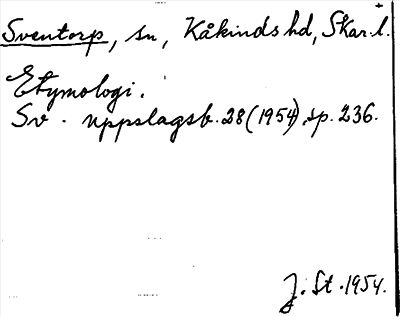 Sventorp, sn, Kåkinds hd, Skar. l.
Etymologi.
Sv. uppslagsb. 28 (1954), sp. 236.
J. St. 1954.